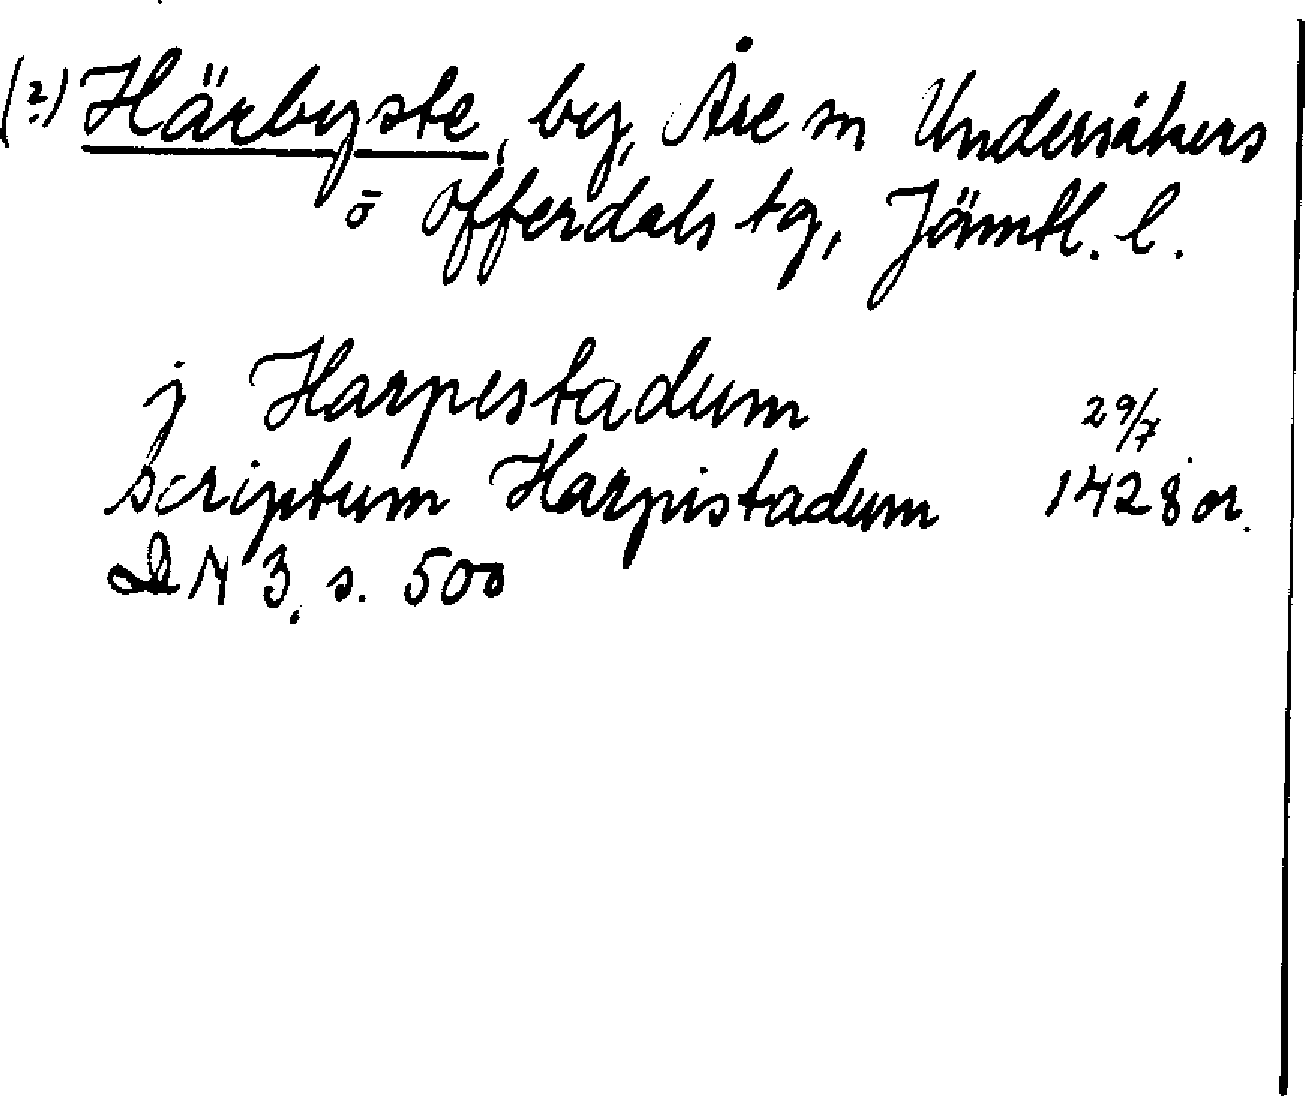 (?) Härbyste, by, Åre sn Undersåkers
o Offerdals tg, Jämtl. l.
j Harpestadum 29/7
scriptum Harpistadum 1428 or.
DN 3, s. 500